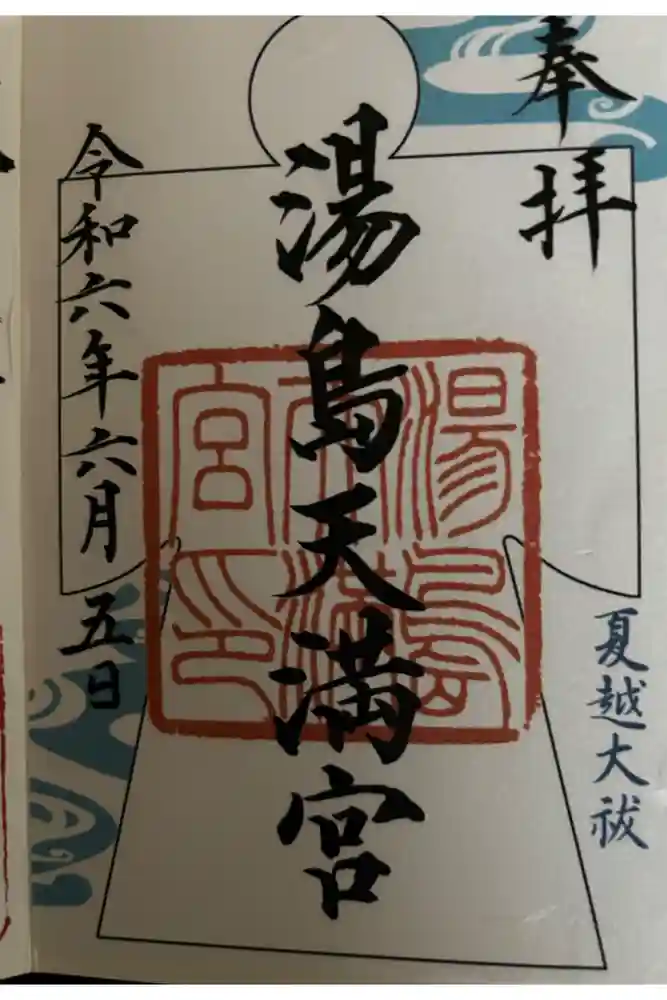 奉拝
夏越大祓
湯島天満宮
湯島天満宮印
令和六年六月五日